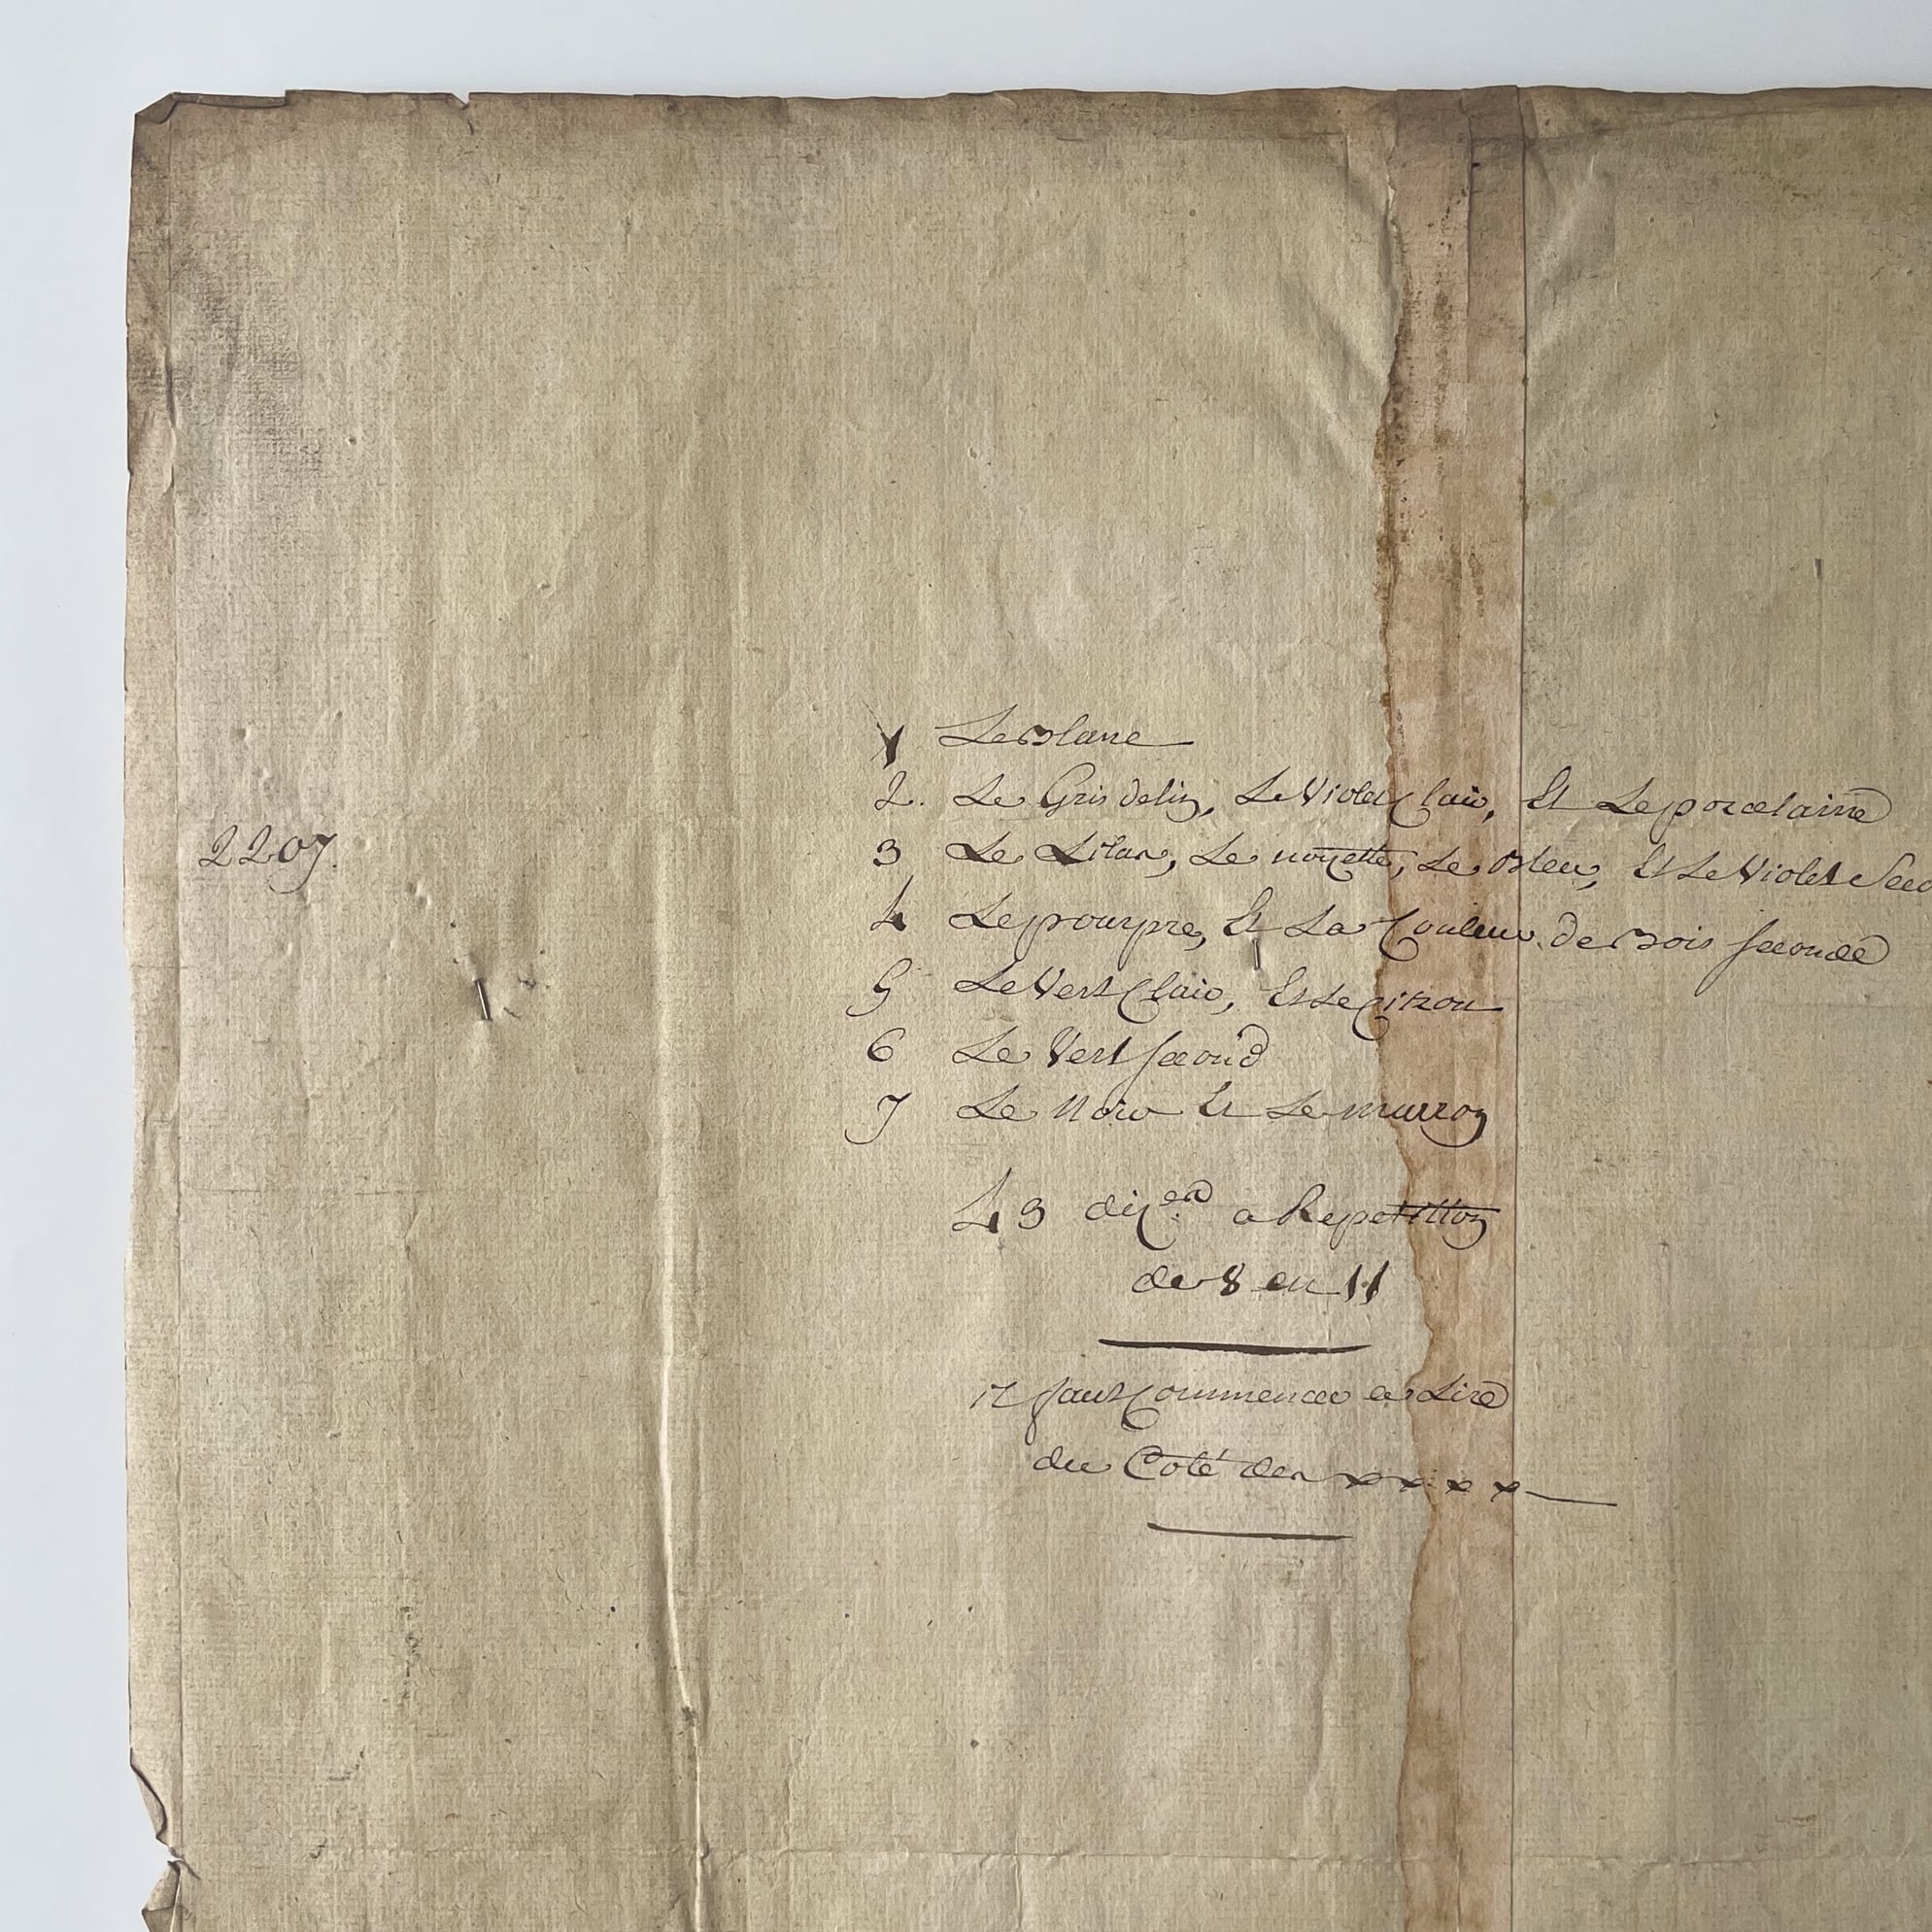 1 Le Blanc
2. Le Gris delin, Le Violet Clair, Et Le porcelaine
2207.
3 Le Lilas, Le noizette, Le Bleu, Et Le Violet Seco
4 Le pourpre, Et La Couleur de Bois seconde
5 Le Vert Clair, Et Le Citron
6 Le Vert second
7 Le Noir Et Le marron
43 diz.es a Repetition
de 8 en 11
il faut Commencer a Lire
du Coté des x x x x